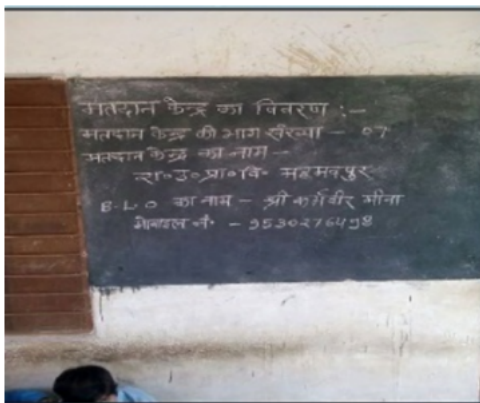 मतदान केन्द्र का विवरण :-
मतदान केन्द्र की भाग संख्या - 07
मतदान केन्द्र का नाम -
रा॰उ॰प्रा॰वि॰ महमदपुर
B.L.O का नाम - श्री कर्मवीर मीना
मोबाइल नं॰ - 9530276498